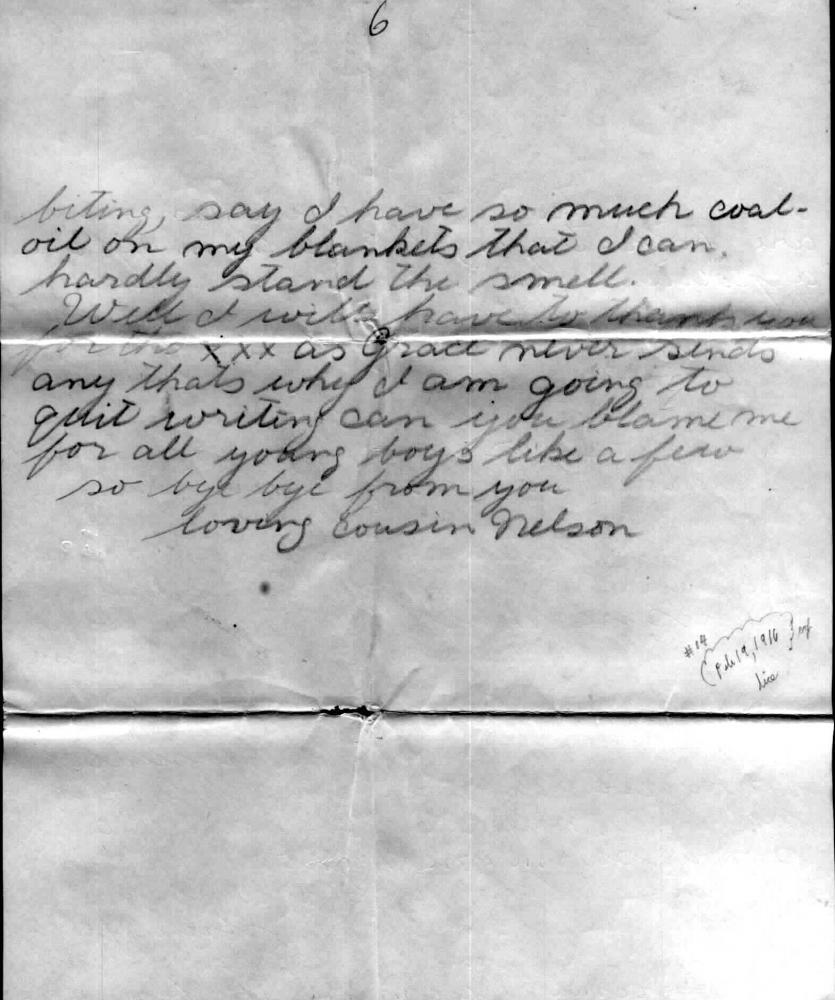 6
biting, say I have so much coal-
oil on my blankets that I can
hardly stand the smell.
Well I will have to thank you
for the xxx as Grace never sends
any thats why I am going to
quit writing can you blame me
for all young boys like a few
so bye bye from you
loving cousin Nelson
#14
(Feb 19, 1916
lice